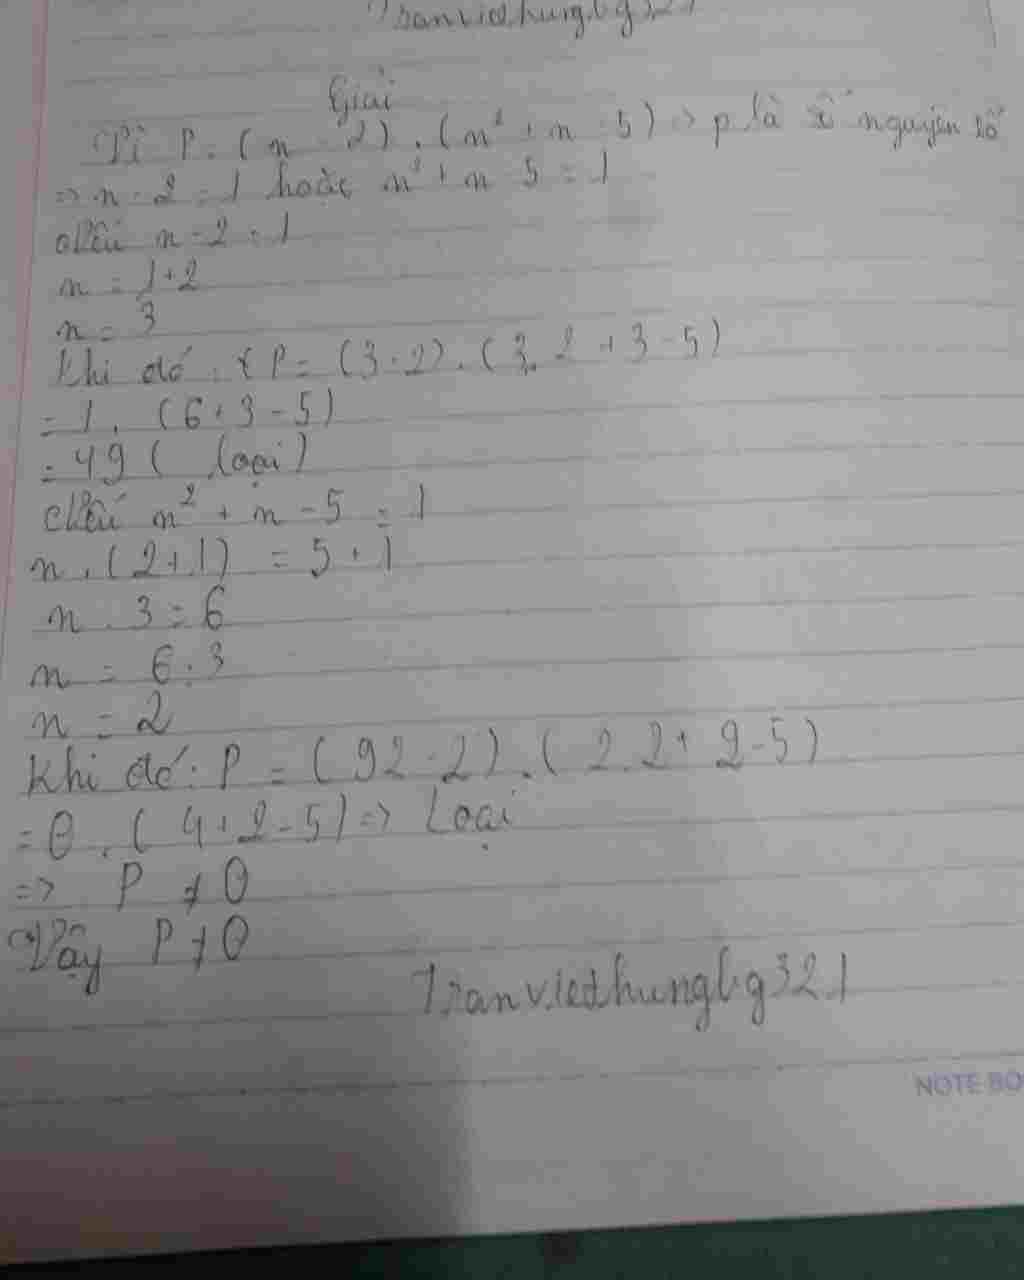 Tranviethungbg321
Giải
Vì P = (n - 2) . (n² + n - 5) => p là số nguyên tố
=> n - 2 = 1 hoặc n² + n - 5 = 1
Nếu n - 2 = 1
n = 1 + 2
n = 3
Khi đó : P = (3 - 2) . (3. 2 + 3 - 5)
= 1 . (6 + 3 - 5)
= 49 ( loại)
Nếu n² + n - 5 = 1
n . (2 + 1) = 5 + 1
n . 3 = 6
n = 6 : 3
n = 2
Khi đó : P = (92 - 2) . ( 2 . 2 + 2 - 5)
= 0 . ( 4 + 2 - 5) => Loại
=> P ≠ 0
Vậy P ≠ 0
Tranviethungbg321
NOTE BO